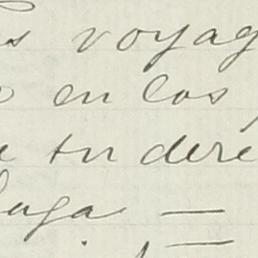 s voyag
en los
tu dere
luga —